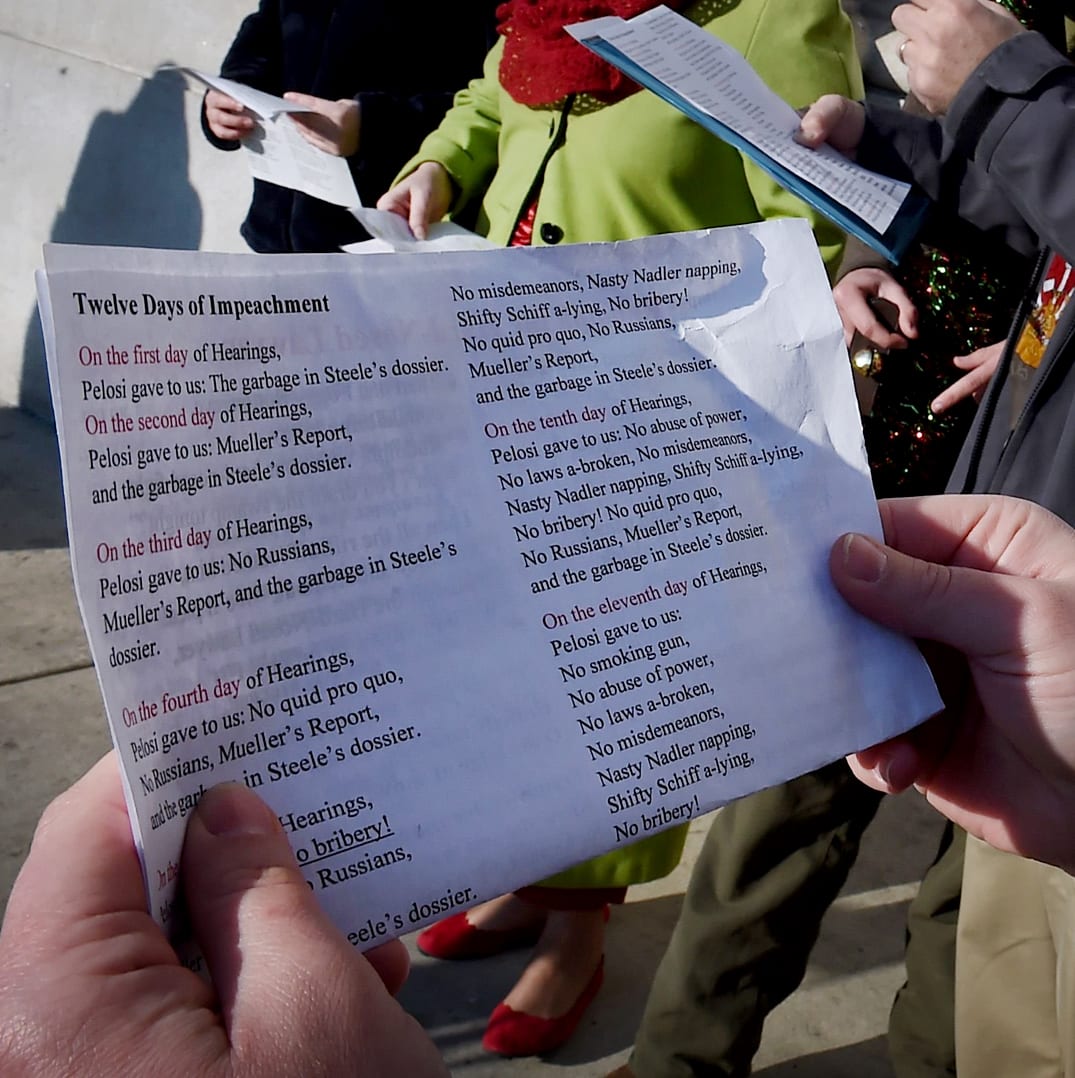 Twelve Days of Impeachment
On the first day of Hearings,
Pelosi gave to us: The garbage in Steele's dossier.
On the second day of Hearings,
Pelosi gave to us: Mueller's Report,
and the garbage in Steele's dossier.
On the third day of Hearings,
Pelosi gave to us: No Russians,
Mueller's Report, and the garbage in Steele's
dossier.
On the fourth day of Hearings,
Pelosi gave to us: No quid pro quo,
No Russians, Mueller's Report,
and the garb in Steele's dossier.
Hearings,
o bribery!
Russians,
eele's dossier.
No misdemeanors, Nasty Nadler napping,
Shifty Schiff a-lying, No bribery!
No quid pro quo, No Russians,
Mueller's Report,
and the garbage in Steele's dossier.
On the tenth day of Hearings,
Pelosi gave to us: No abuse of power,
No laws a-broken, No misdemeanors,
Nasty Nadler napping, Shifty Schiff a-lying,
No bribery! No quid pro quo,
No Russians, Mueller's Report,
and the garbage in Steele's dossier.
On the eleventh day of Hearings,
Pelosi gave to us:
No smoking gun,
No abuse of power,
No laws a-broken,
No misdemeanors,
Nasty Nadler napping,
Shifty Schiff a-lying,
No bribery!